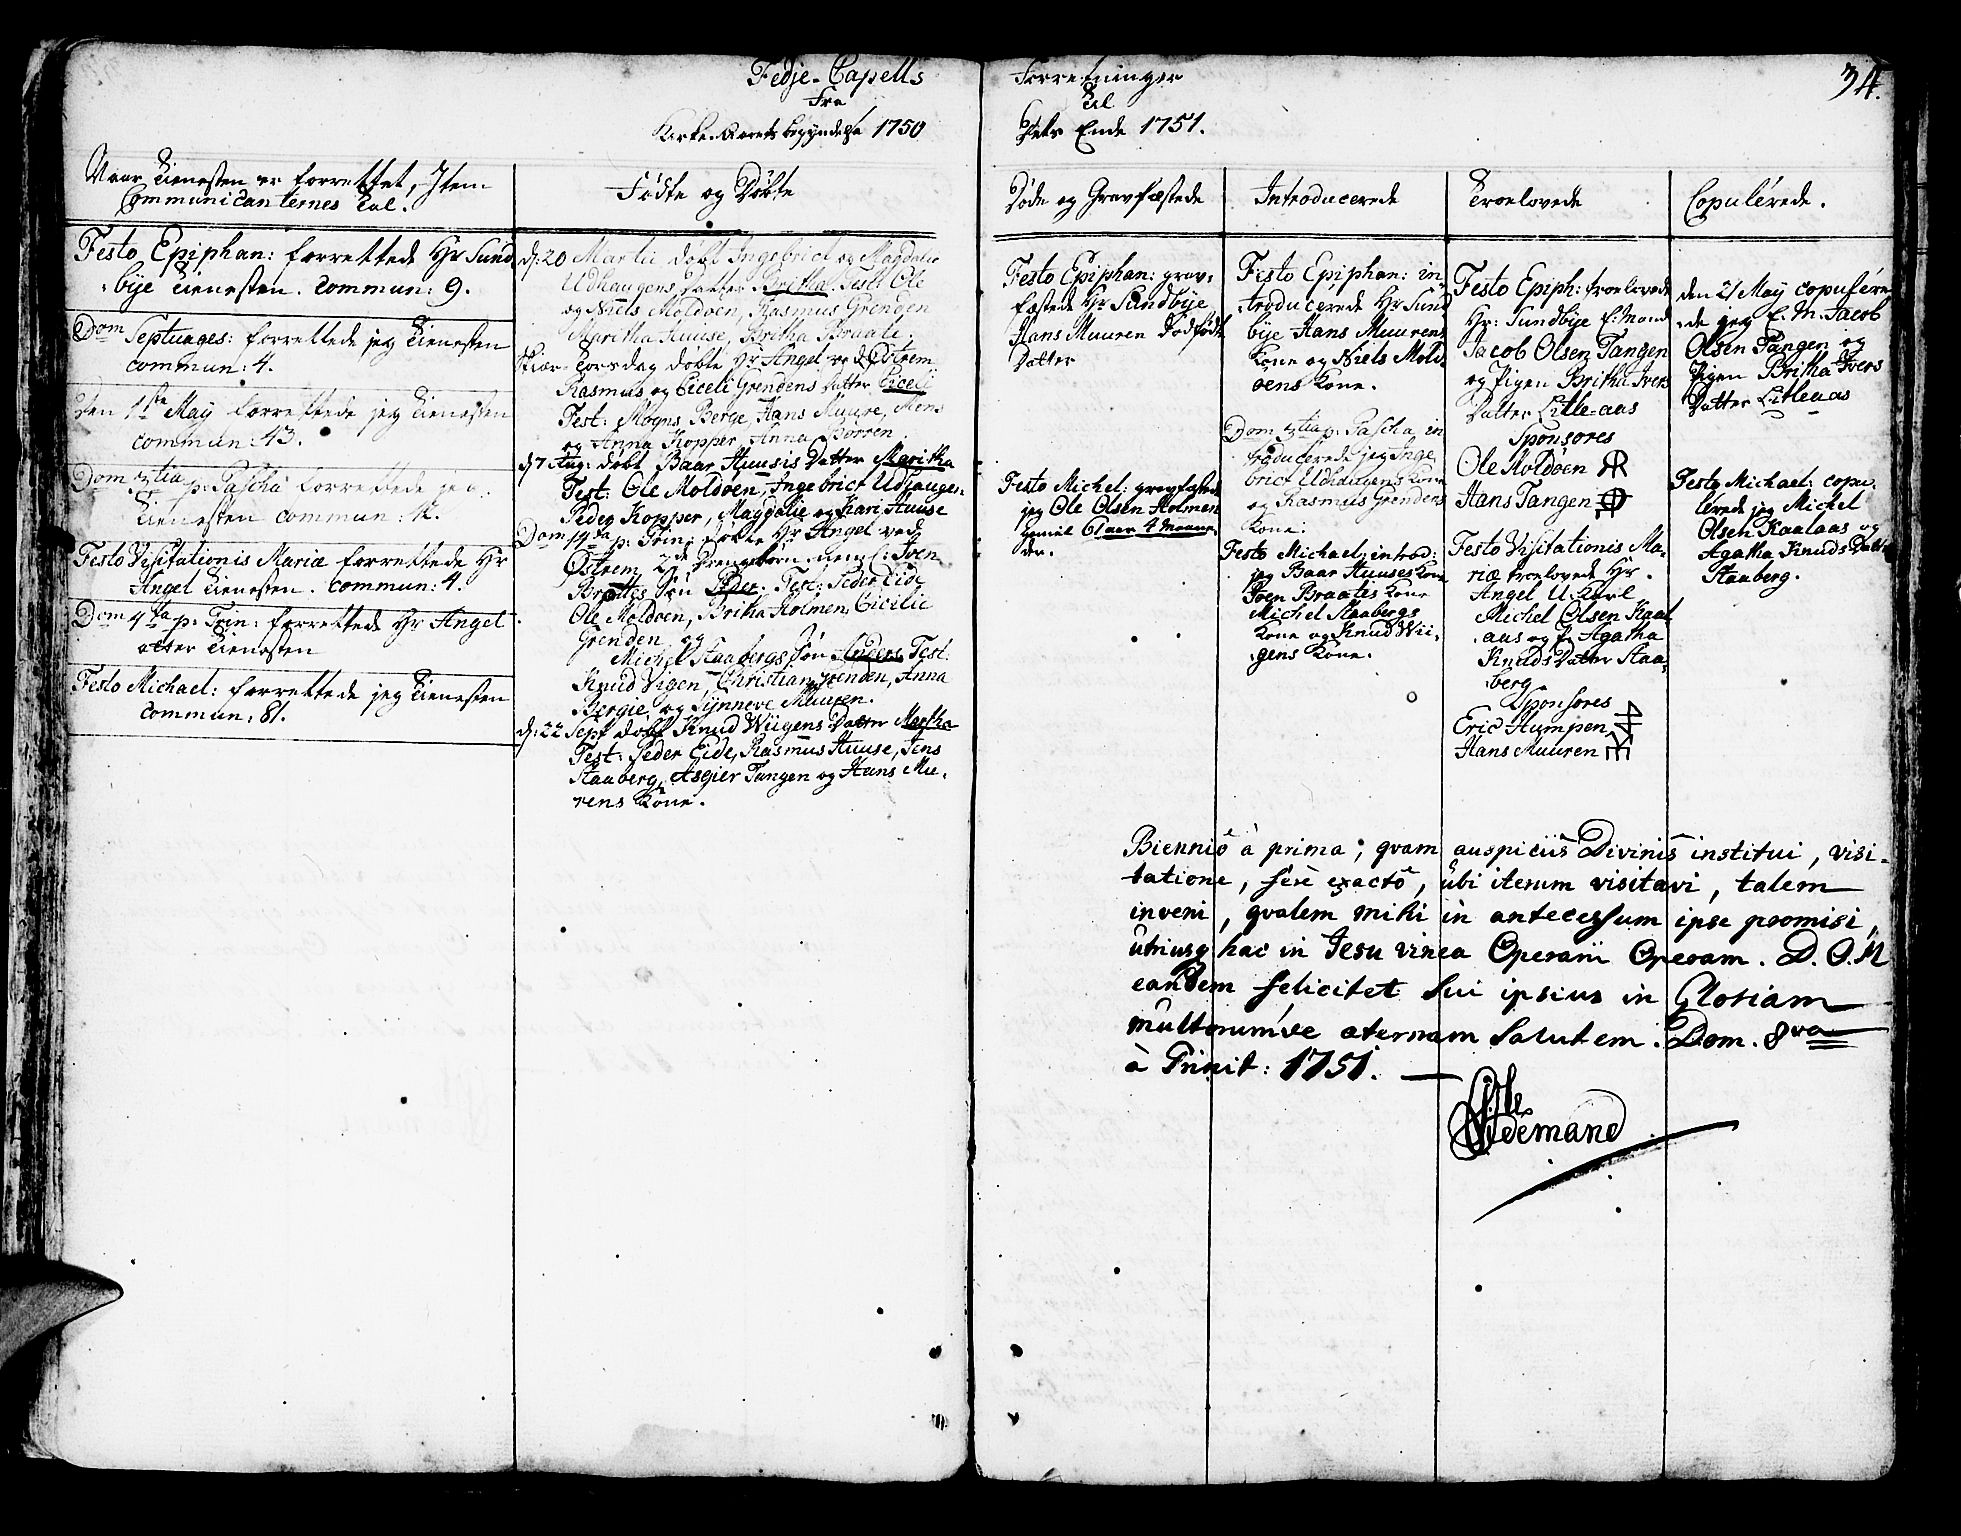 Fedje-Capells
Fra
Kirke-Aarets begyndelse 1750
Naar Tienesten er forrettet, Item
Communicanternes Tal.
Fødte og Døbte
Festo Epiphan: forrettede Hr Sund
bÿe Tienesten. Commun: 9.
Dom Septuages: forrettede jeg Tienesten
commun: 4.
Den 1ste Maÿ forrettede jeg Tienesten
commun: 43.
Dom 3tia p: Pascha forrettede jeg
Tienesten commun:
Festo Visitationis Mariæ forrettede Hr
Angel Tienesten. Commun: 4.
Dom 4ta p: Trin: forrettede Hr Angel
atter Tienesten
Festo Michael: forrettede jeg Tienesten
Commun: 81.
d: 20 Martii døbt Ingebrict og Magdalie
Udhaugens Datter Britha. Test: Ole
og Niels Moldøen, Rasmus Grenden
Maritha Huuse, Britha Braate,
Skiær-Torsdag døbte Hr Angel ved Østrem
Rasmus og Ciceli Grendens Datter Cicelj
Test: Mogns Berge, Hans Muure, Mons
og Anna Kopper, Anna Børren
d 7 Aug: døbt Baar Huusis Datter Maritha
Test: Ole Moldøen, Ingebrict Udhaugen,
Peder Kopper, Magdalie og Kari Huuse
Dom: p: Trin: døbte Hr Angel ved
Østrem 2de Drengebørn, neml: Iven
Braattes Søn Peder, Test: Peder Eide
Ole Moldøen, Britha Holmen, Cicilie
Grenden og
Michel Staabergs Søn Anders Test:
Knud Vigen, Christian Grenden, Anna
Bergie og Sÿnneve Muuren.
d: 22 Sept døbt Knud Wiigens Datter Martha
Test: Peder Eide, Rasmus Huuse, Jens
Staaberg, Asgier Tangen og Hans Mu-
rens Kone.
Forretninger
Til
Dets Ende 1751.
34.
Døde og Gravfæstede
Introducerede
Troelovede
Copulerede.
Festo Epiphan: grav-
fæstede Hr Sundbÿe
Hans Muuren Dødfødte
Datter
Festo Michel: gravfæstede
jeg Ole Olsen Holmen
gamel 61 aar 4 Maane-
der.
Festo Epiphan: in
troducerede Hr Sund
bÿe Hans Muurens
Kone og Niels Mold
øens Kone.
Dom 3tia p: Pascha in
troducerede jeg Inge
brict Udhaugens Kone
og Rasmus Grendens
Kone.
Festo Michael: introd:
jeg Baar Huuses Kone
Iven Braates Kone
Michel Staabergs
Kone og Knud Wii-
gens Kone.
Festo Epiph: troelovede
Hr: Sundbÿe
Jacob Olsen Tangen
og Pigen Britha Ivers
Datter Litle-aas
Sponsores
Ole Moldøen
Hans Tangen
Festo Visitationis Ma-
riæ troelovede Hr.
Angel U. Karl
Michel Olsen Kaal
aas og P. Agatha
Knuds Datter Staa-
berg
Sponsores
Eric Humpen
Hans Muuren
den 21 Maÿ copulere
de jeg E. M. Jacob
Olsen Tangen og
Pigen Britha Ivers
Datter Litleaas
Festo Michael: copu-
lerede jeg Michel
Olsen Kaalaas og
Agatha Knuds Datter
Staaberg.
Bienniô à prima, qvam auspiciis Divinis institui, visi-
tatione, ferè exactô, ubi iterum visitavi, talem
inveni, qvalem mihi in antecessum ipse promisi,
utriusq hac in Jesu vinea Operarii Operam. D. O. M
eandem felicitet sui ipsius in Gloriam
multorumve æternam Salutem. Dom. 8va
à Trinit: 1751.
Ole
Tidemand